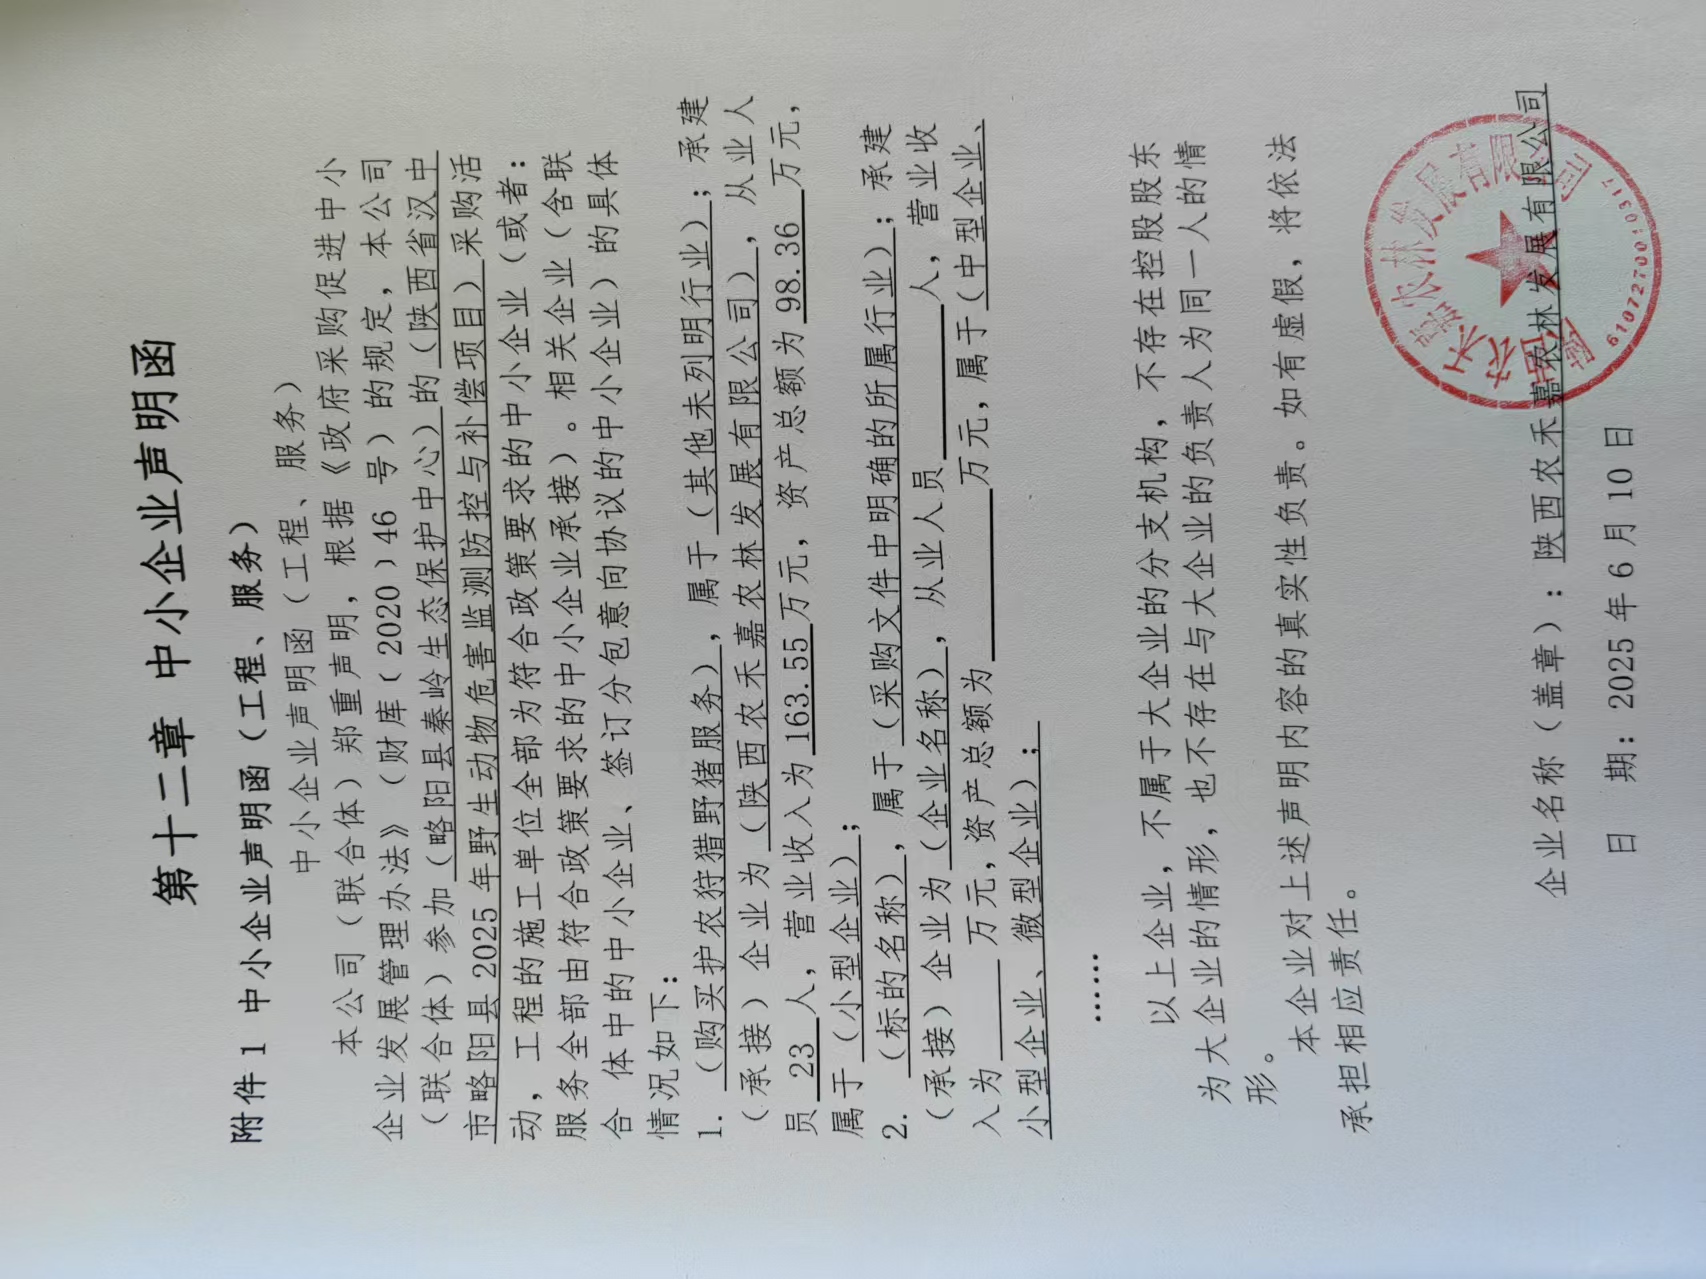 第十二章 中小企业声明函
附件1 中小企业声明函（工程、服务）
中小企业声明函（工程、服务）
本公司（联合体）郑重声明，根据《政府采购促进中小
企业发展管理办法》（财库(2020)46 号）的规定，本公司
（联合体）参加（略阳县秦岭生态保护中心）的（陕西省汉中
市略阳县2025年野生动物危害监测防控与补偿项目）采购活
动，工程的施工单位全部为符合政策要求的中小企业（或者：
服务全部由符合政策要求的中小企业承接）。相关企业（含联
合 体中的中小企业、签订分包意向协议的中小企业）的具体
情况如下：
1. （购买护农狩猎野猪服务），属于（其他未列明行业）；承建
（承接）企业为（陕西农禾嘉农林发展有限公司），从业人
员 23 人，营业收入为 163.55 万元，资产总额为 98.36 万元，
属于（小型企业）；
2. （标的名称），属于（采购文件中明确的所属行业）；承建
（承接）企业为（企业名称），从业人员 人，营业收
入为 万元，资产总额为 万元，属于（中型企业、
小型企业、微型企业）；
……
以上企业，不属于大企业的分支机构，不存在控股股东
为大企业的情形，也不存在与大企业的负责人为同一人的情
形。
本企业对上述声明内容的真实性负责。如有虚假，将依法
承担相应责任。
企业名称（盖章）：陕西农禾嘉农林发展有限公司
日 期：2025年6月10日
陕西农禾嘉农林发展有限公司
6107270010317